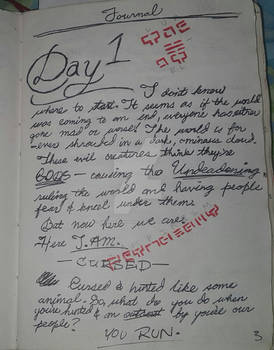 Journal
Day 1
I don't know
where to start. It seems as if the world
was coming to an end, everyone has either
gone mad or worse! The world is for
-ever shrouded in a dark, ominous cloud.
These evil creatures think they're
GODS — causing the
ruling the world and having people
fear & kneel under them
But now here we are.
Here I.AM.
—CURSED—
Cursed & hunted like some
animal. So, what do you do when
you're hunted & an outcast by you're own
people?
YOU RUN.
3